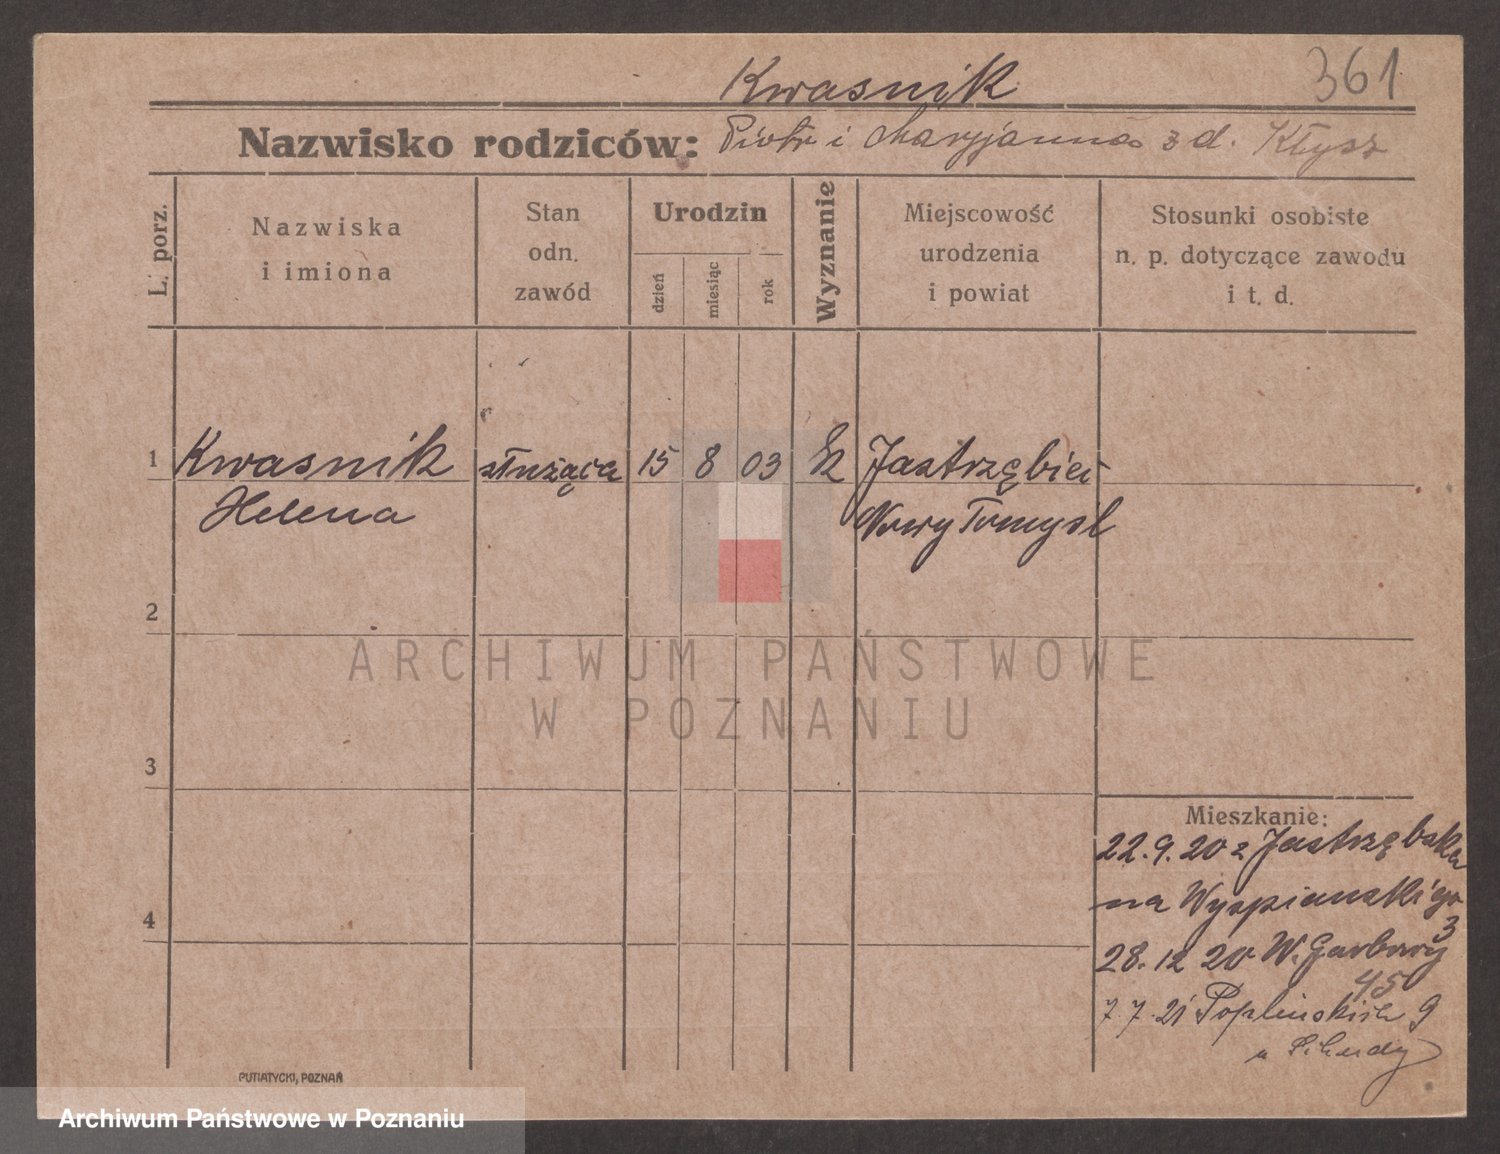 Kwasnik
361
Nazwisko rodziców: Piotr i Maryjanna z d. Kłysz
L. porz.
Nazwiska
i imiona
Stan
odn.
zawód
Urodzin
dzień
miesiąc
rok
Wyznanie
Miejscowość
urodzenia
i powiat
Stosunki osobiste
n. p. dotyczące zawodu
i t. d.
1 Kwasnik służąca 15 8 03 Jastrzębiec
Helena Nowy Tomysl
2
ARCHIWUM PAŃSTWOWE
W POZNANIU
3
Mieszkanie:
22.9.20 z Jastrzębska
na Wyspianskiego
3
4
28.12 20 W. Garbary
45
7.7.21 Poplinskich 9
u
PUTIATYCKI, POZNAŃ
Archiwum Państwowe w Poznaniu